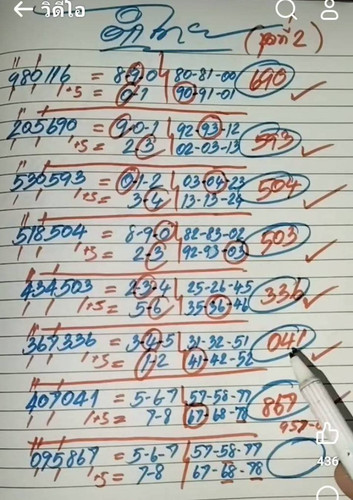 วิดีโอ
(ชุดที่ 2)
980116 = 8-9-0 80-81-00 690
+5 = 0-1 90-91-01
205690 = 9-0-1 92-93-12 593
+5 = 2-3 02-03-13
530593 = 0-1-2 03-04-23 504
1+5 = 3-4 13-13-24
518504 = 8-9-0 82-83-02 503
+5 = 2-3 92-93-03
434503 = 2-3-4 25-26-45 336
1+5 = 5-6 35-36-46
367336 = 3-4-5 31-32-51 041
+5 = 1-2 41-42-52
407041 = 5-6-7 57-58-77 867
1+5 = 7-8 67-68-78
095867 = 5-6-7 57-58-77
+5 = 7-8 67-68-78
436